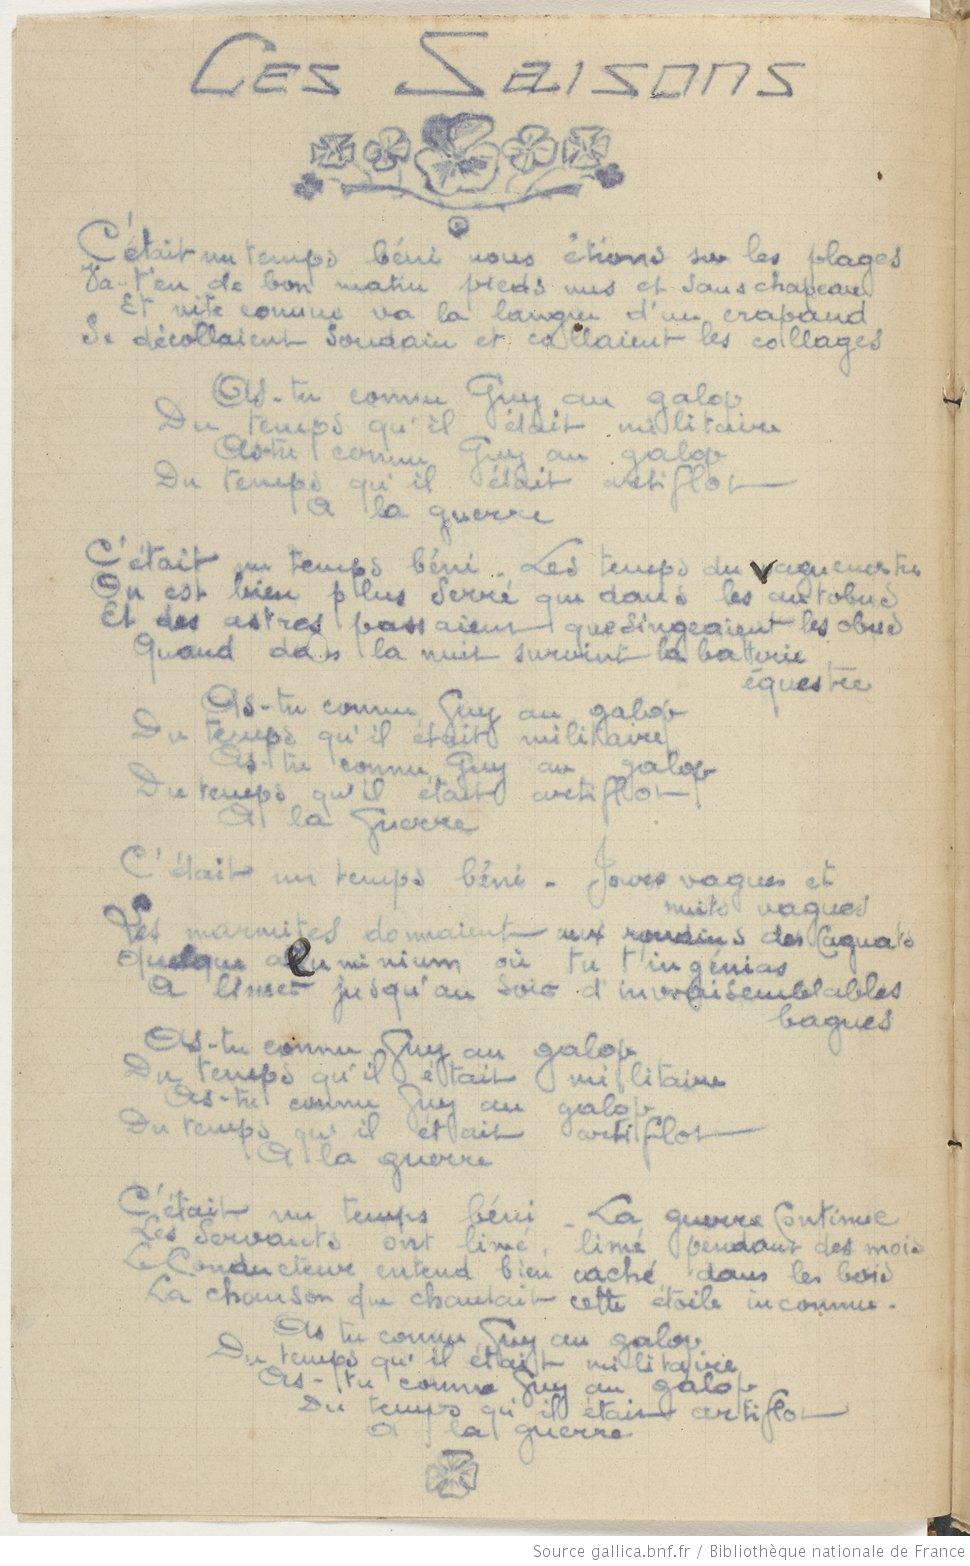 Les Saisons
C'était un temps béni nous étions sur les plages
Va-t'en de bon matin pieds nus et sans chapeau
Et vite comme va la langue d'un crapaud
Se décollaient soudain et collaient les collages
As-tu connu Guy au galop
Du temps qu'il était militaire
As-tu connu Guy au galop
Du temps qu'il était artiflot
A la guerre
C'était un temps béni. Les temps du vaguemestre
On est bien plus serré que dans les autobus
Et des astres passaient que singeaient les obus
Quand dans la nuit survint la batterie
équestre
As-tu connu Guy au galop
Du temps qu'il était militaire
As-tu connu Guy au galop
Du temps qu'il était artiflot
A la Guerre
C'était un temps béni - Jours vagues et
nuits vagues
Les marmites donnaient aux rondins des Cagnats
Quelque aluminium où tu t'ingénias
A limer jusqu'au soir d'invraisemblables
bagues
As-tu connu Guy au galop
Du temps qu'il était militaire
As-tu connu Guy au galop
Du temps qu'il était artiflot
A la guerre
C'était un temps béni - La guerre Continue
Les Servants ont limé, limé pendant des mois
Le Conducteur entend bien caché dans les bois
La chanson que chantait cette étoile inconnue.
As tu connu Guy au galop
Du temps qu'il était militaire
As-tu connu Guy au galop
Du temps qu'il était artiflot
A la guerre
Source gallica.bnf.fr / Bibliothèque nationale de France